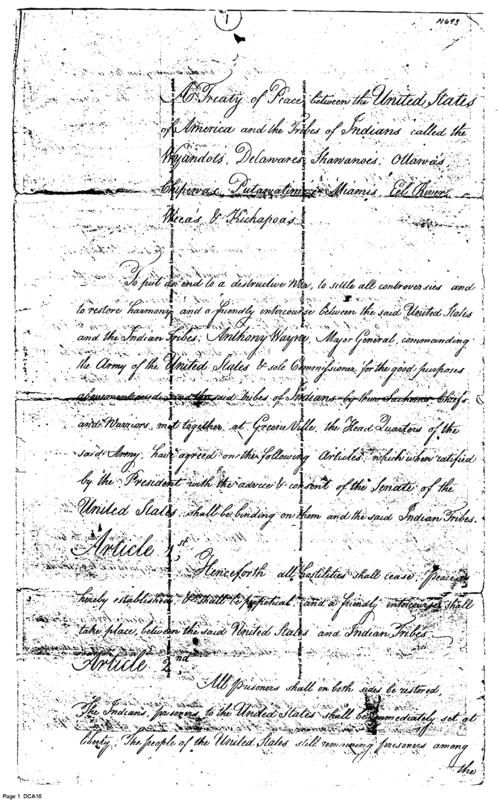 1
N643
A Treaty of Peace between the United States
of America and the Tribes of Indians called the
Wyandots, Delawares, Shawanoes, Ottawas
Chipewas, Putawatimes, Miamis, Eel River
Weeas & Kickapoos
To put an end to a destructive War, to settle all controversies and
to restore harmony and a friendly intercourse between the said United States
and the Indian Tribes; Anthony Wayne, Major General, commanding
the Army of the United States & sole Commissioner for the good purposes
abovementioned and the said Tribes of Indians by their Sachems Chiefs
and Warriors, met together at Greene Ville, the Head Quarters of the
said Army, have agreed on the following Articles, which when ratified
by the President with the advice & consent of the Senate of the
United States, shall be binding on them and the said Indian Tribes.
Article 1st
Henceforth all hostilities shall cease, Peace is
hereby established & shall be perpetual; and a friendly intercourse shall
take place, between the said United States and Indian Tribes
Article 2nd
All prisoners shall on both sides be restored,
The Indians, prisoners to the United States shall be immediately set at
liberty, The people of the United States still remaining prisoners among
the
Page 1 DCA10